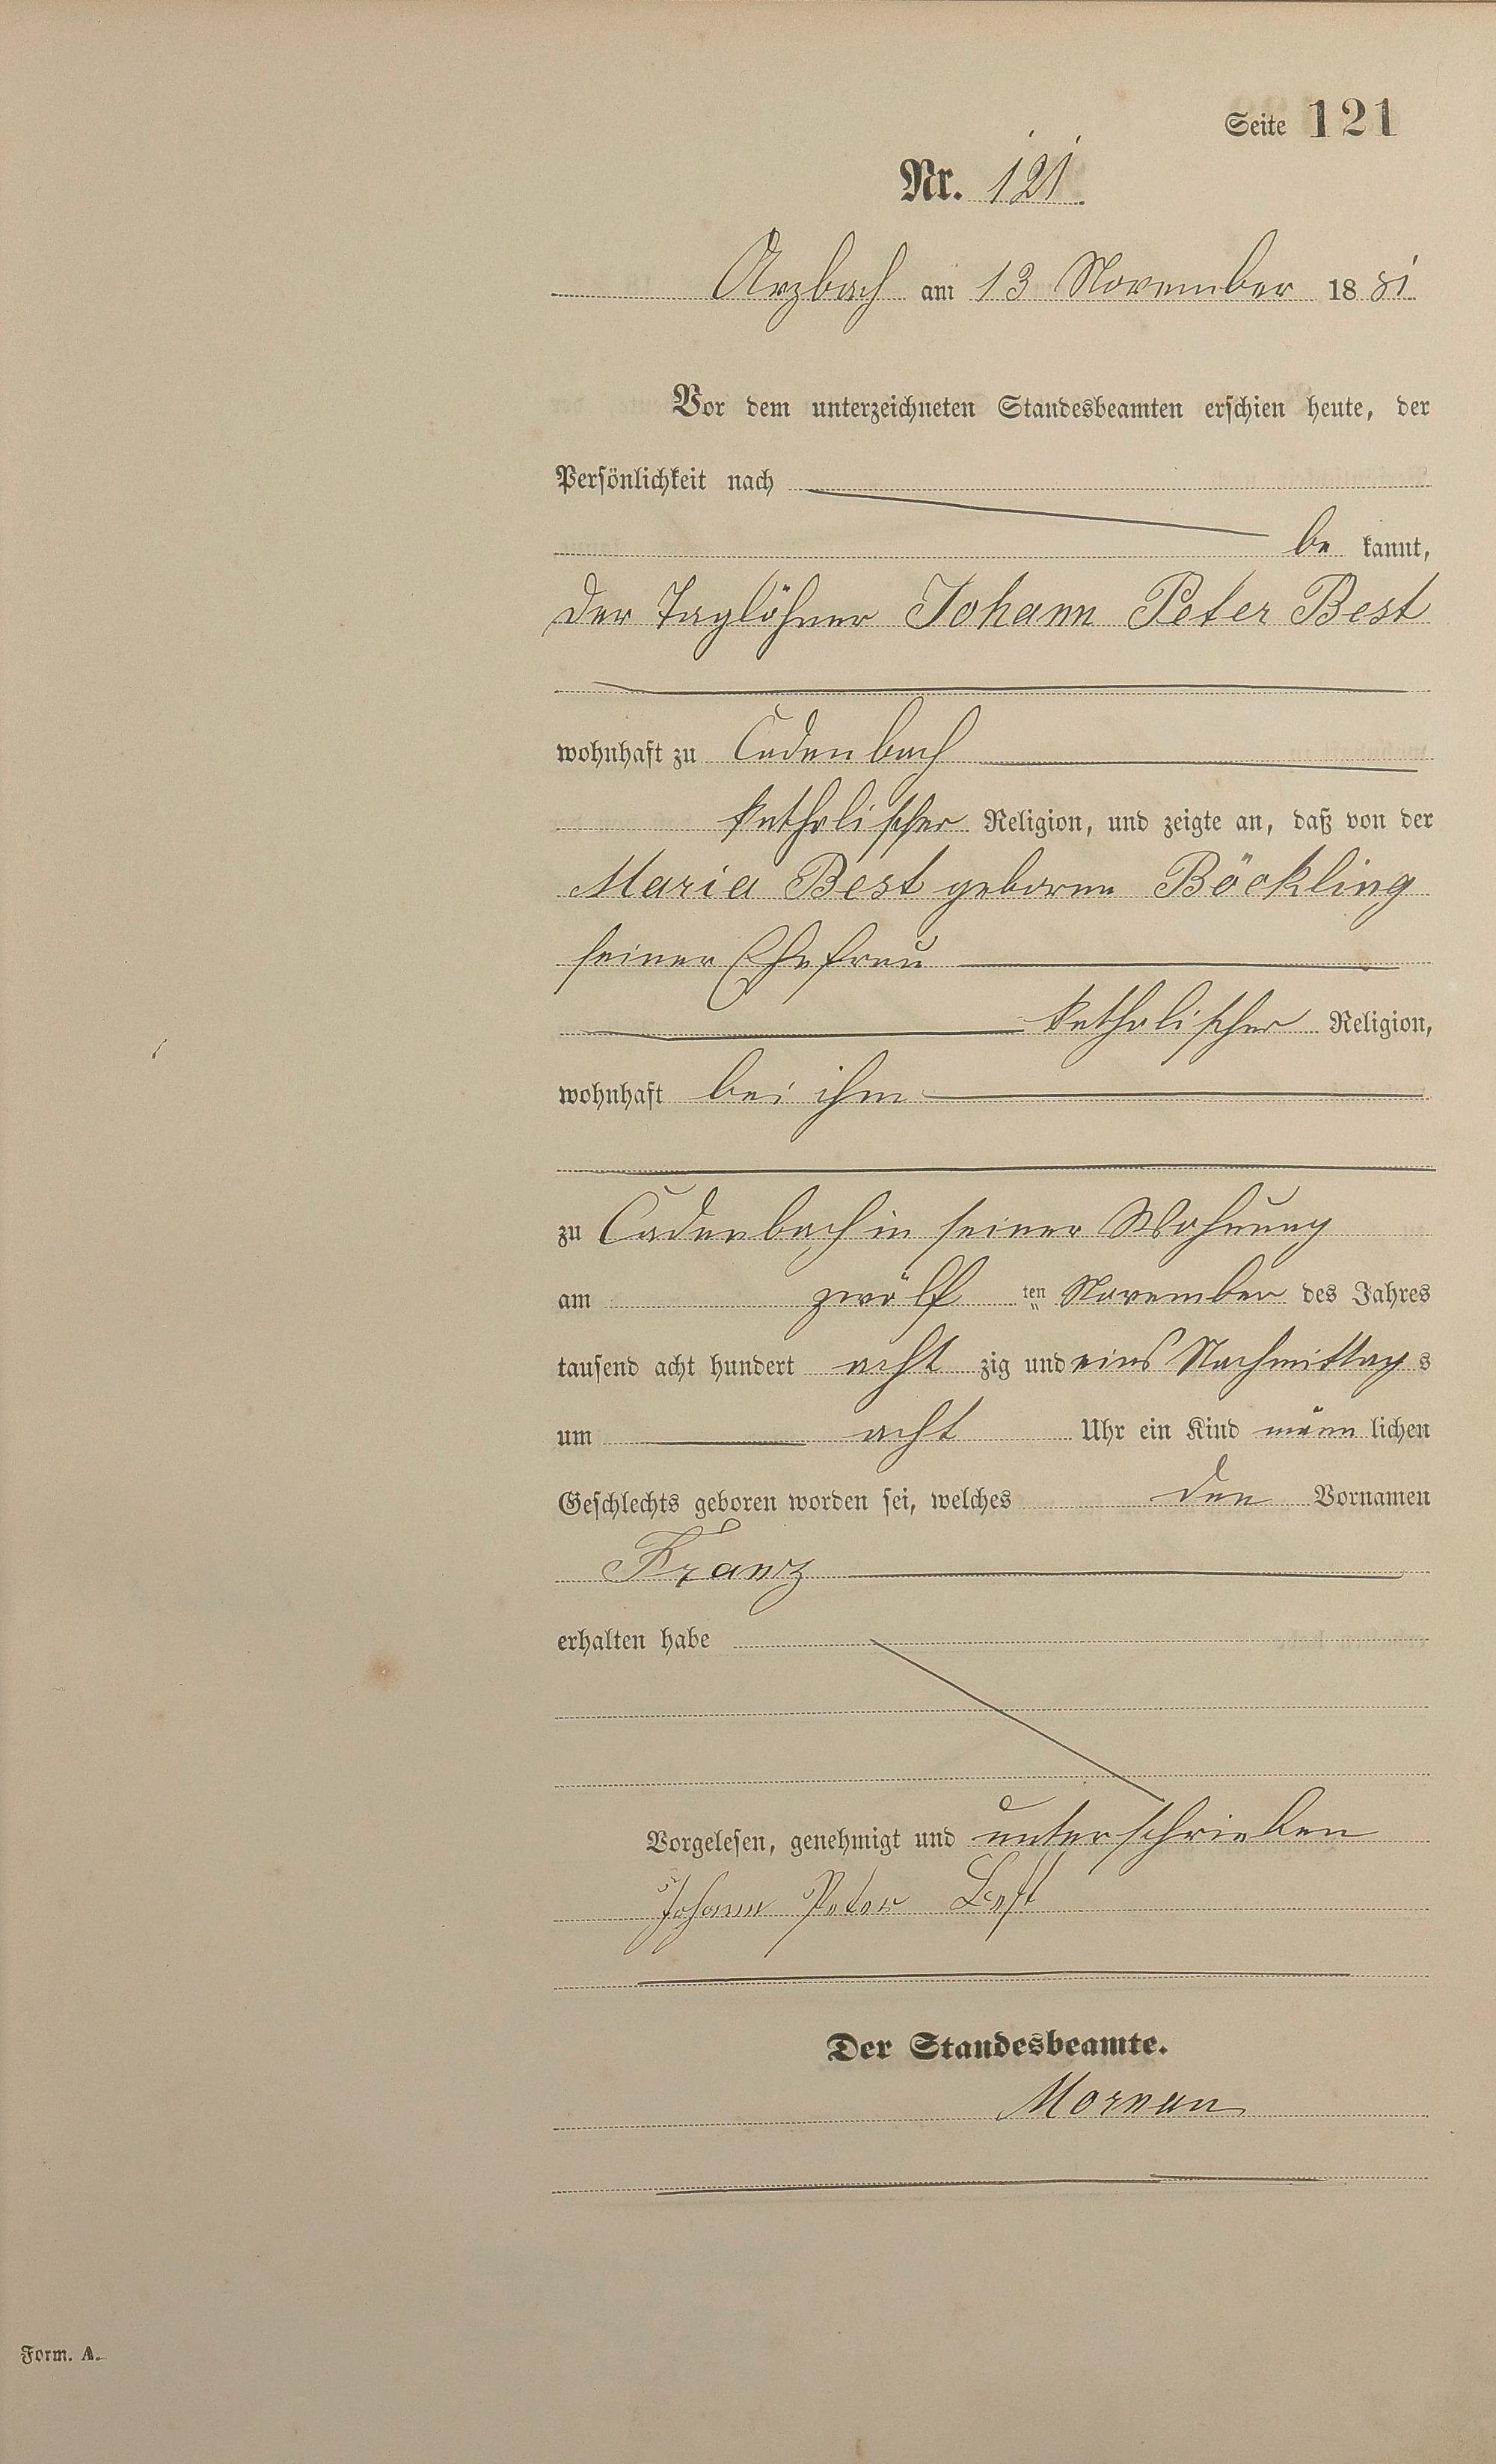 Seite 121
Nr. 121.
Arzbach am 13 November 18 81
Vor dem unterzeichneten Standesbeamten erschien heute, der
Persönlichkeit nach
be kannt,
der Taglöhner Johann Peter Best
wohnhaft zu Cadenbach
katholischer Religion, und zeigte an, daß von der
Maria Best geborne Böckling
seiner Ehefrau
katholischer Religion,
wohnhaft bei ihm
zu Cadenbach in seiner Wohnung
am zwölf ten November des Jahres
tausend acht hundert acht zig und eins Nachmittag s
um acht Uhr ein Kind männ lichen
Geschlechts geboren worden sei, welches den Vornamen
Franz
erhalten habe
Vorgelesen, genehmigt und unterschrieben
Johann Peter Best
Der Standesbeamte.
Form. A.